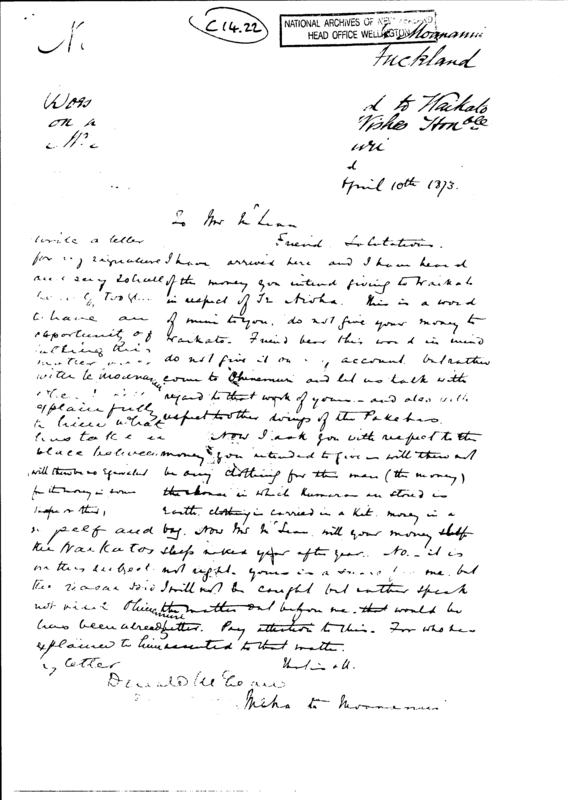 N.
C 14.22
NATIONAL ARCHIVES OF NEW ZEALAND
HEAD OFFICE WELLINGTON
Te Moananui
Auckland
d to Waikato
Wishes Honble
wri
d
on a
April 10th 1873.
To Mr McLean
Friend Salutations.
I have arrived here and I have heard
of the money you intend giving to Waikato
in respect of Te Aroha. This is a word
of mine to you. do not give your money to
Waikato. Friend bear this word in mind
do not give it on my account but rather
come to Ohinemuri and let us talk with
regard to that work of yours - and also with
respect to other doings of the Pakehas.
Now I ask you with respect to the
money you intended to give - will there not
be any clothing for the man (the money)
the house in which Kumaras are stored is
Earth, clothing is carried in a Kit. money in a
bag. Now Mr McLean will your money sleep
sleep naked year after year. No. - it is
not right. yours is a me, but
I will not be caught but rather speak
the matter out before me. that would be
better. Pay attention to this. For who has
assented to that matter.
Meha te Moananui
write a letter
for my signature
and say I shall
to have an
opportunity of
talking this
matter over
with Te Moananui
explain fully
to him what
has taken
place between
will there be no Equivalent
for the money
self and
the Waikatos
on this subject.
the reason I did
not visit Ohinemuri
has been already
explained to him
by letter
Donald McLean